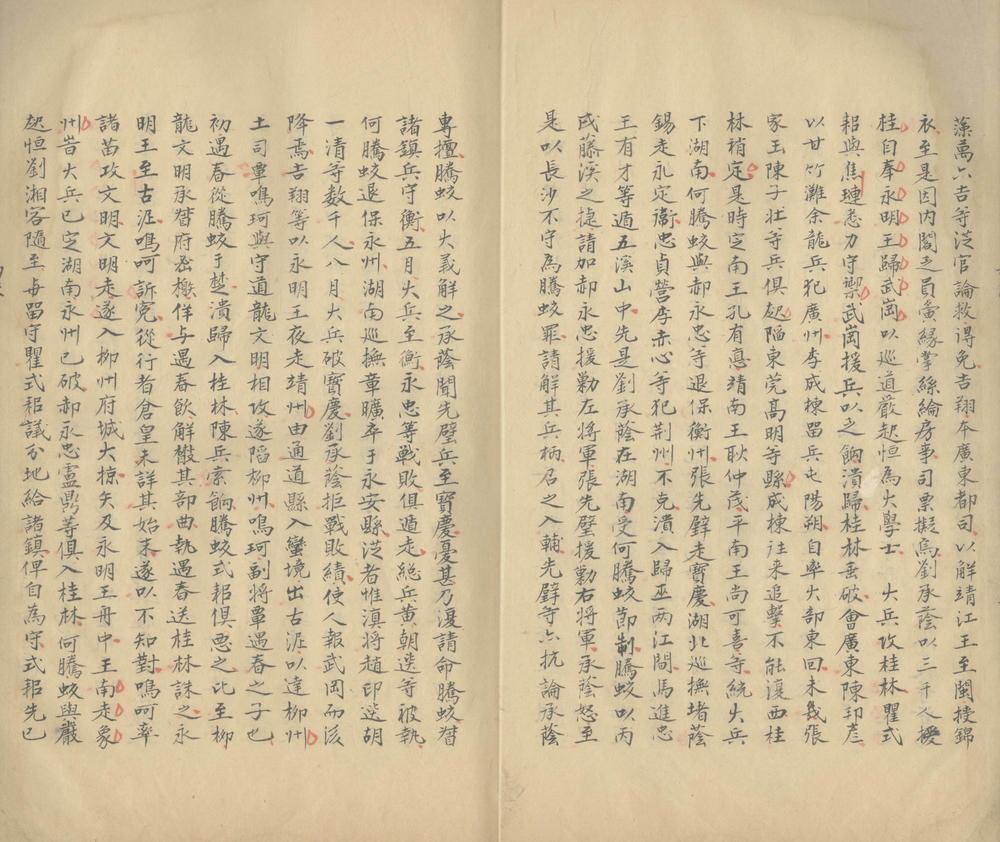 藻萬六吉等從官論救得免吉翔本廣東都司以解靖江王至閩授錦
衣至是因內閣乏員夤緣掌絲綸房事司票擬焉劉承蔭以三千人援
桂自奉永明王歸武崗以巡道嚴起恒為大學士 大兵攻桂林瞿式
耜與焦璉悉力守禦武崗援兵以乏餉潰歸桂林垂破會廣東陳邦彥
以甘竹灘余龍兵犯廣州李成棟留兵屯陽朔自率大部東回未幾張
家玉陳子壯等兵俱起陷東莞高明等縣成棟往來追擊不能復西桂
林稍定是時定南王孔有德靖南王耿仲茂平南王尚可喜等統大兵
下湖南何騰蛟與郝永忠等退保衡州張先璧走寶慶湖北巡撫堵蔭
錫走永定衛忠貞營李赤心等犯荊州不克潰入歸巫兩江間馬進忠
王有才等遁五溪山中先是劉承蔭在湖南受何騰蛟節制騰蛟以丙
戌藤溪之捷請加郝永忠援勦左將軍張先璧援勦右將軍承蔭怒至
是以長沙不守為騰蛟罪請解其兵柄召之入輔先璧等亦抗論承蔭
專擅騰蛟以大義解之承蔭聞先璧兵至寶慶憂甚乃復請命騰蛟督
諸鎮兵守衡五月大兵至衡永忠等戰敗俱遁走總兵黃朝選等被執
何騰蛟退保永州湖南巡撫章曠卒于永安縣從者惟滇將趙印選胡
一清等數千人八月大兵破寶慶劉承蔭拒戰敗績使人報武岡而後
降焉吉翔等以永明王夜走靖州由通道縣入蠻境出古涯以達柳州
土司覃鳴珂與守道龍文明相攻遂陷柳州鳴珂副將覃遇春之子也
初遇春從騰蛟于楚潰歸入桂林陳兵索餉騰蛟式耜俱惡之比至柳
龍文明承督府密檄佯与遇春飲解散其部曲執遇春送桂林誅之永
明王至古涯鳴呵訴冤從行者倉皇未詳其始末遂以不知對鳴呵率
諸苗攻文明文明走遂入柳州府城大掠矢及永明王舟中王南走象
州岢大兵已定湖南永州已破郝永忠盧鼎等俱入桂林何騰蛟與嚴
起恒劉湘客隨至毋留守瞿式耜議分地給諸鎮俾自為守式耜先已